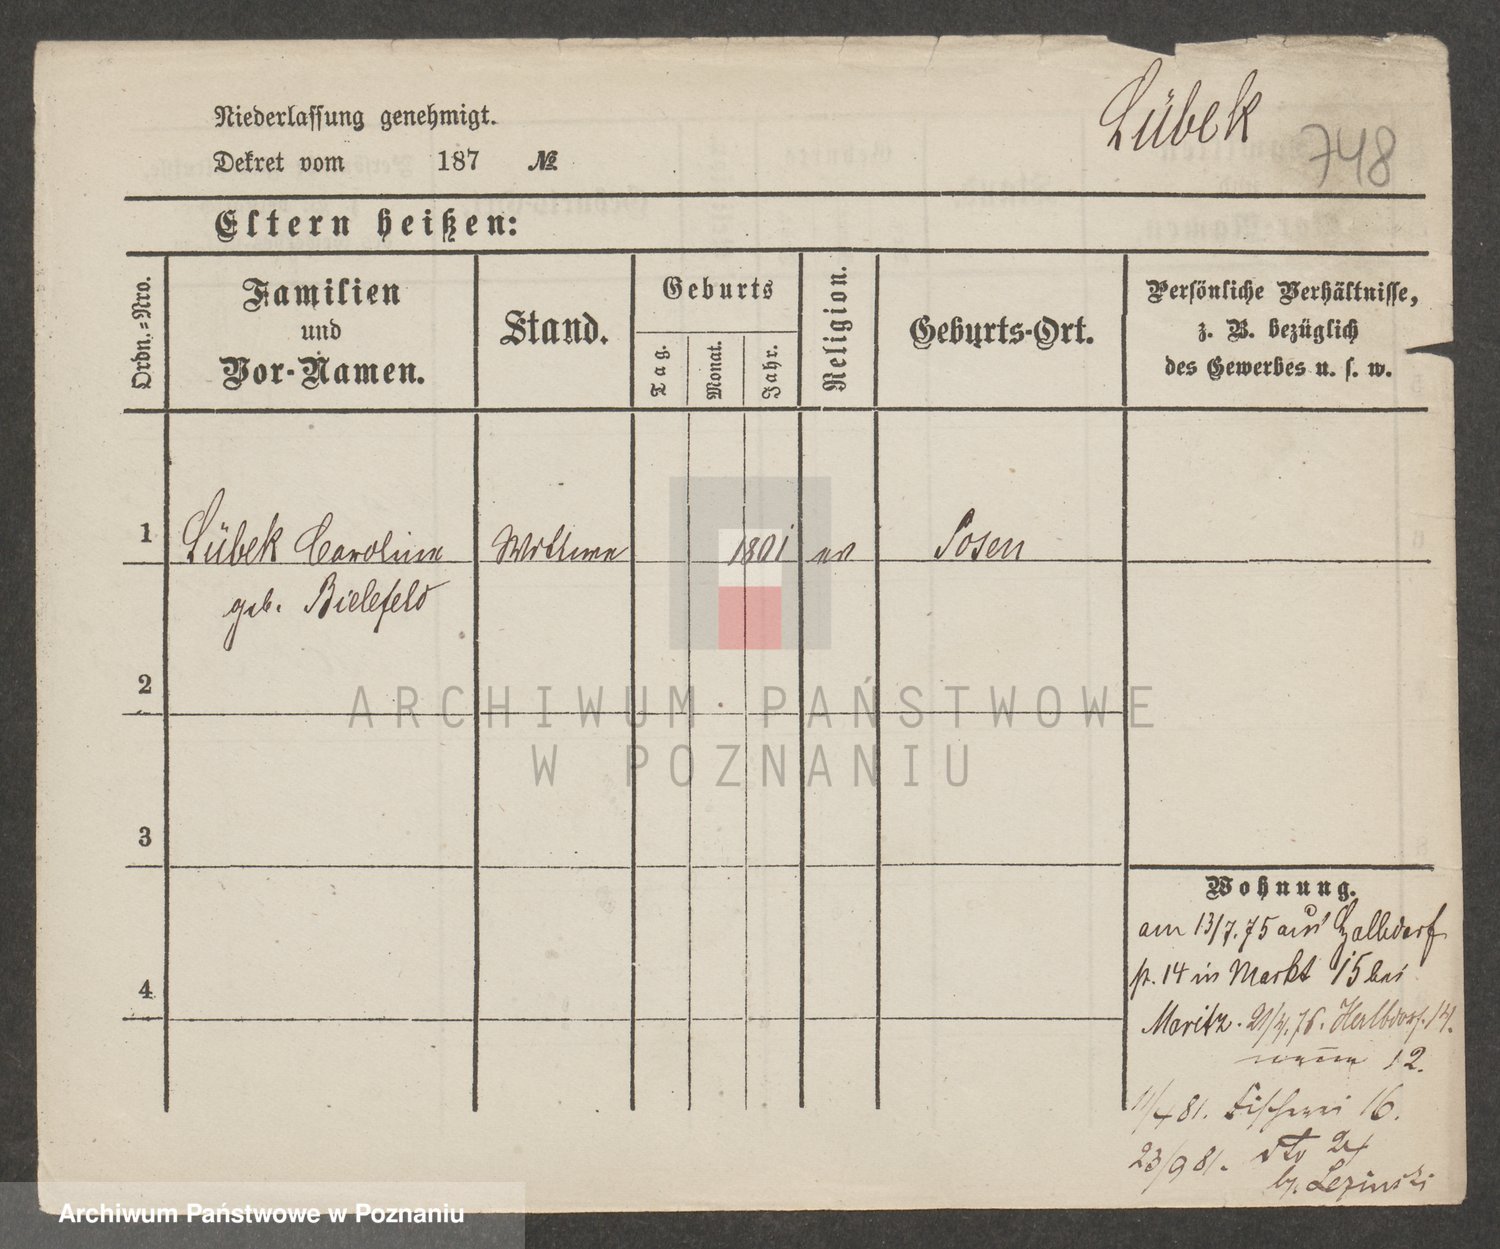 Niederlassung genehmigt.
Dekret vom 187 №
Lübek 748
Eltern heißen:
Ordn.-Nro.
Familien
und
Vor-Namen.
Stand.
Geburts
Tag.
Monat.
Jahr.
Religion.
Geburts-Ort.
Persönliche Verhältnisse,
z. B. bezüglich
des Gewerbes u. s. w.
1 Lübek Caroline Wittwe 1801 ev Posen
geb. Bielefeld
2
3
4
Wohnung.
am 13/7.75 aus
p. 14 in Markt 15 bei
Moritz. 21/4.76. Halbdorf. 14.
12.
81. Fischerei 16.
23/9 81. dto
ARCHIWUM PAŃSTWOWE
W POZNANIU
Archiwum Państwowe w Poznaniu